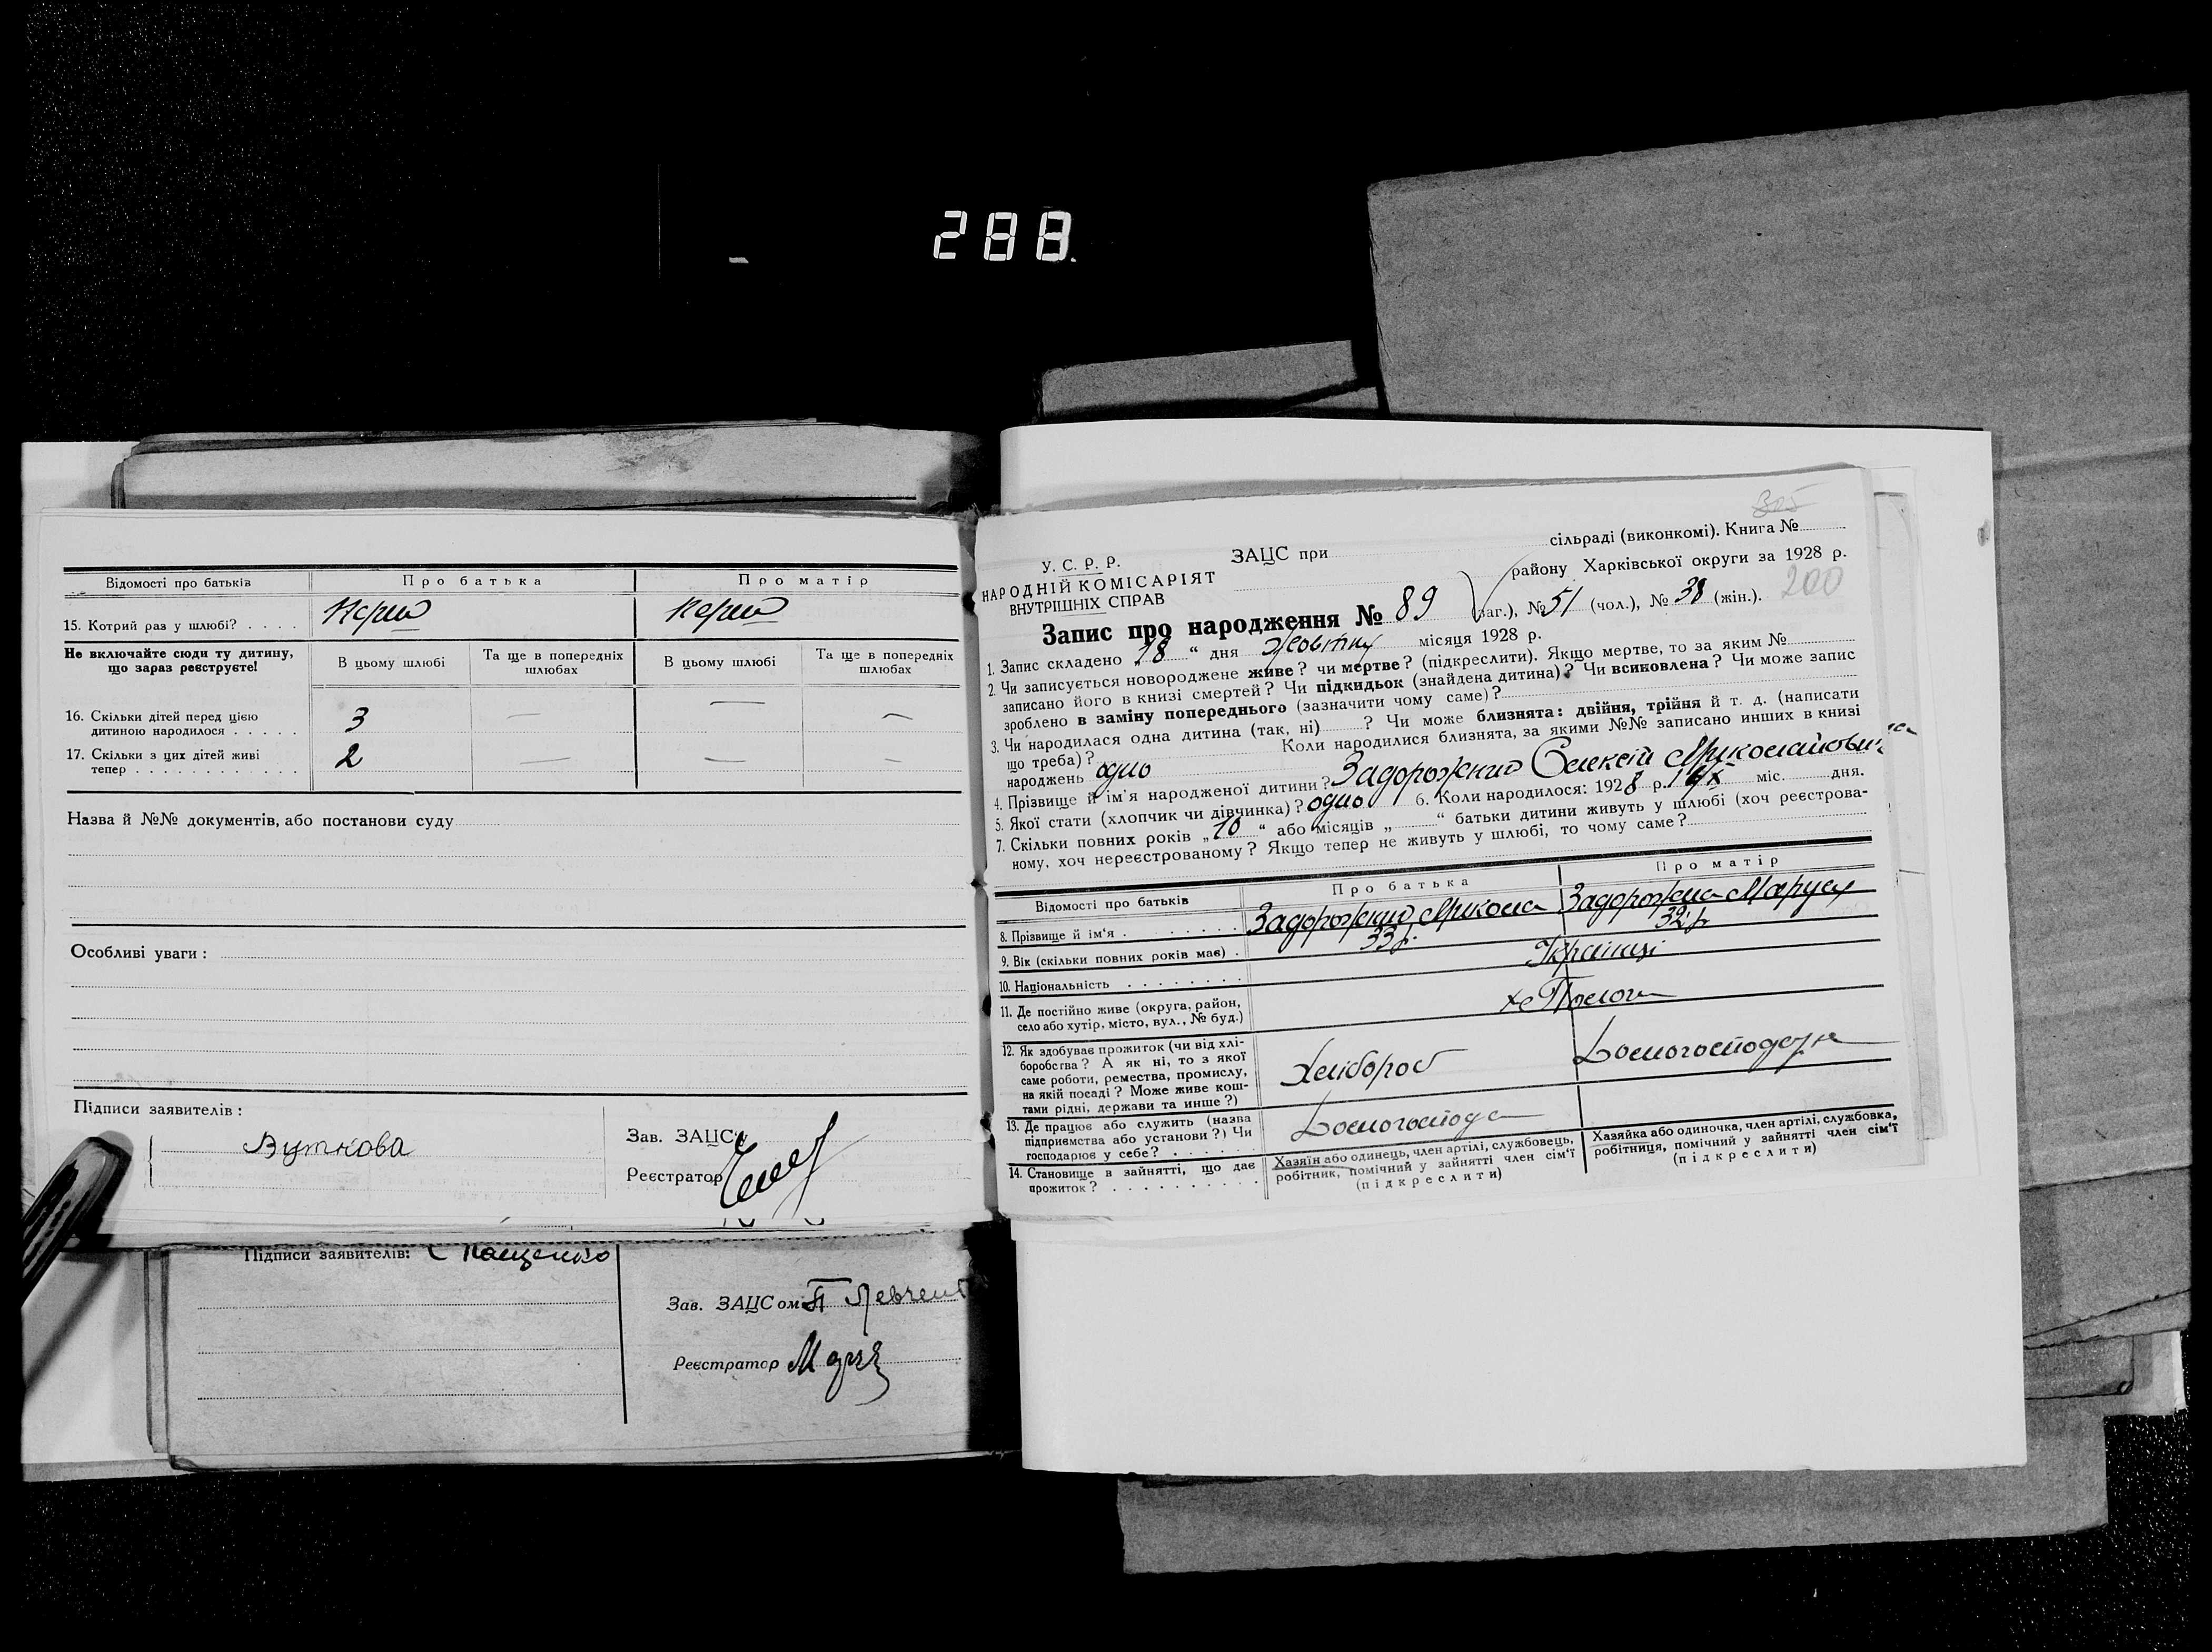 288.
Відомості про батьків
Про батька
Про матір
15. Котрий раз у шлюбі? . . . .
Не включайте сюди ту дитину, що зараз реєструєте!
В цьому шлюбі
Та ще в попередніх шлюбах
В цьому шлюбі
Та ще в попередніх шлюбах
16. Скільки дітей перед цією
дитиною народилося . . . . .
3 — — —
17. Скільки з цих дітей живі
тепер . . . . . . . . . . . .
2 — — —
Назва й №№ документів, або постанови суду
Особливі уваги :
Підписи заявителів :
Зав. ЗАЦСу
Реєстратор
Підписи заявителів: Пащенко
Зав. ЗАЦСом
Реєстратор
305
ЗАЦС при
сільраді (виконкомі). Книга №
У. С. Р. Р.
НАРОДНІЙ КОМІСАРІЯТ
ВНУТРІШНІХ СПРАВ
району Харківської округи за 1928 р.
200
Запис про народження № 89 (заг.), № 51 (чол.), № 38 (жін.).
1. Запис складено 18 " дня Жовтня місяця 1928 р.
2. Чи записується новороджене живе? чи мертве? (підкреслити). Якщо мертве, то за яким №
записано його в книзі смертей? Чи підкидьок (знайдена дитина)? Чи всиновлена? Чи може запис
зроблено в заміну попереднього (зазначити чому саме)?
3. Чи народилася одна дитина (так, ні) ? Чи може близнята: двійня, трійня й т. д. (написати
що треба)? Коли народилися близнята, за якими №№ записано инших в книзі
народжень одно
4. Прізвище й ім'я народженої дитини? Задорожний Олексій Миколайович
5. Якої статі (хлопчик чи дівчинка)? одно 6. Коли народилося: 1928 р. міс. дня.
7. Скільки повних років „ 10 " або місяців „ " батьки дитини живуть у шлюбі (хоч реєстрова-
ному, хоч нереєстрованому? Якщо тепер не живуть у шлюбі, то чому саме?
Відомості про батьків
Про батька
Про матір
8. Прізвище й ім'я . . . . . . . . Задорожний Микола Задорожна Маруся
9. Вік (скільки повних років має) . 33 р. 32 р.
10. Національність . . . . . . . . Українці
11. Де постійно живе (округа, район,
село або хутір, місто, вул., № буд.)
12. Як здобуває прожиток (чи від хлі-
боробства? А як ні, то з якої
саме роботи, ремества, промислу,
на якій посаді? Може живе кош-
тами рідні, держави та инше?)
Хлібороб
13. Де працює або служить (назва
підприємства або установи?) Чи
господарює у себе? . . . . . .
14. Становище в зайнятті, що дає
прожиток? . . . . . . . . . .
Хазяїн або одинець, член артілі, службовець,
робітник, помічний у зайнятті член сім'ї
(підкреслити)
Хазяйка або одиночка, член артілі, службовка,
робітниця, помічний у зайнятті член сім'ї
(підкреслити)